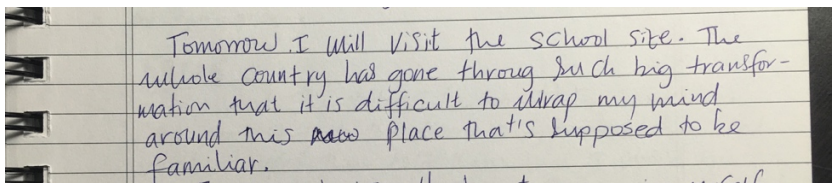 Tomorrow I will visit the school site. The
whole country has gone throug such big transfor-
mation that it is difficult to wrap my mind
around this place that's supposed to be
familiar.